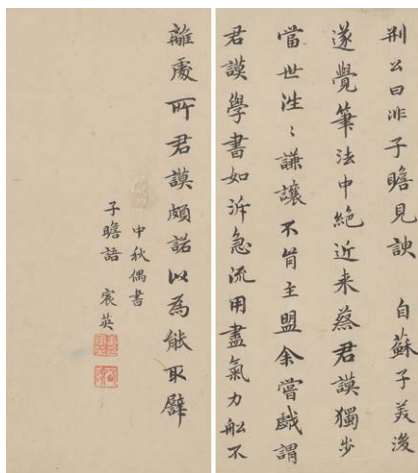 荆公曰非子瞻見諛　自蘇子美後
遂覺筆法中絶近来蔡君謨獨步
當世往〻謙讓不肯主盟余嘗戲謂
君謨學書如泝急流用盡氣力船不
離處所君謨頗諾以為能取譬
中秋偶書
子瞻語　宸英